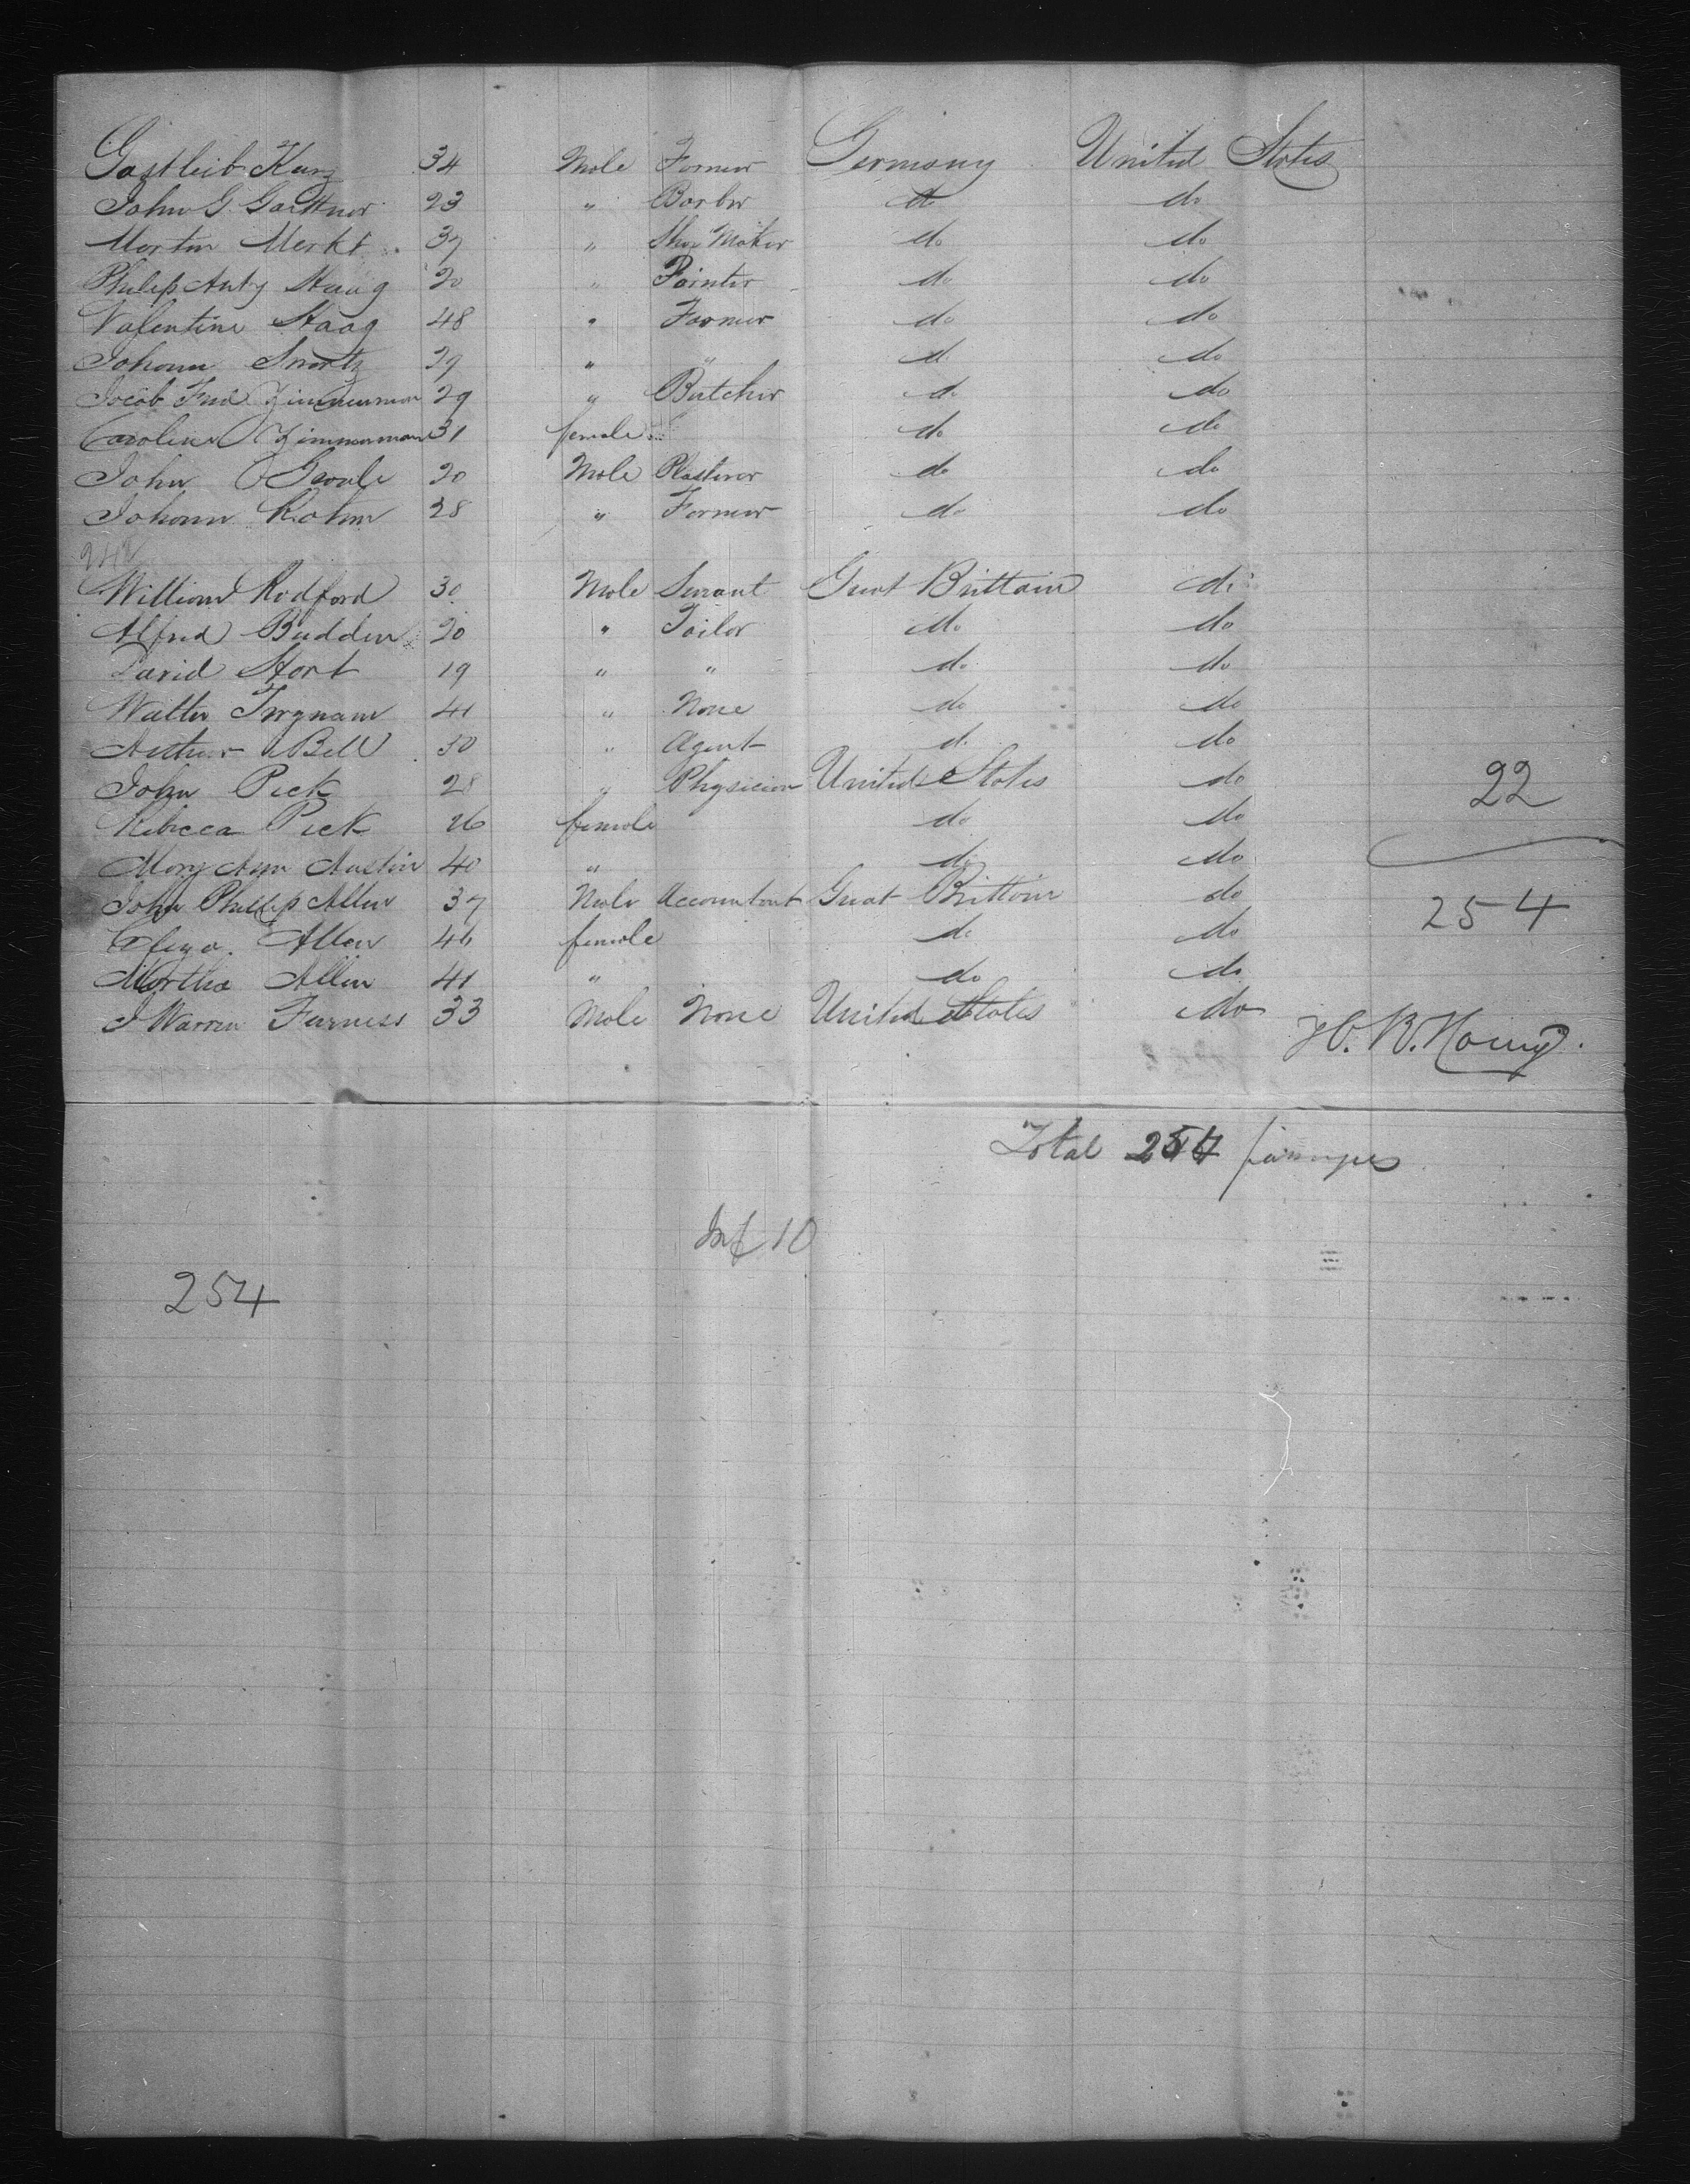 Gottleib Kurz 34 Male Farmer Germany United States
John G. Gaettner 23 " Barber do do
Martin Merkt 37 " Shoe Maker do do
Philip Anty Haag 20 " Painter do do
Valentine Haag 48 " Farmer do do
Johann Swartz 29 " " do do
Jacob Fred Zimmerman 29 " Butcher do do
Caroline Zimmerman 31 female do do
John 20 Male Plasterer do do
Johann Rahm 28 " Farmer do do
William Radford 30 Male Servant Great Brittain do
Alfred Budden 20 " Tailor do do
David Hart 19 " " do do
Walter 41 " None do do
Arthur Bell 30 " Agent do do
John Peck 28 " Physician United States do
22
Rebecca Peck 26 female do do
Mary Ann Austin 40 " do do
John Phillip Allen 37 Male Accountant Great Brittain do
254
Eliza Allen 46 female do do
Martha Allen 41 " do do
J Warren Furness 33 Male None United States do
H. B.
Total 254 passengers
Inf 10
254